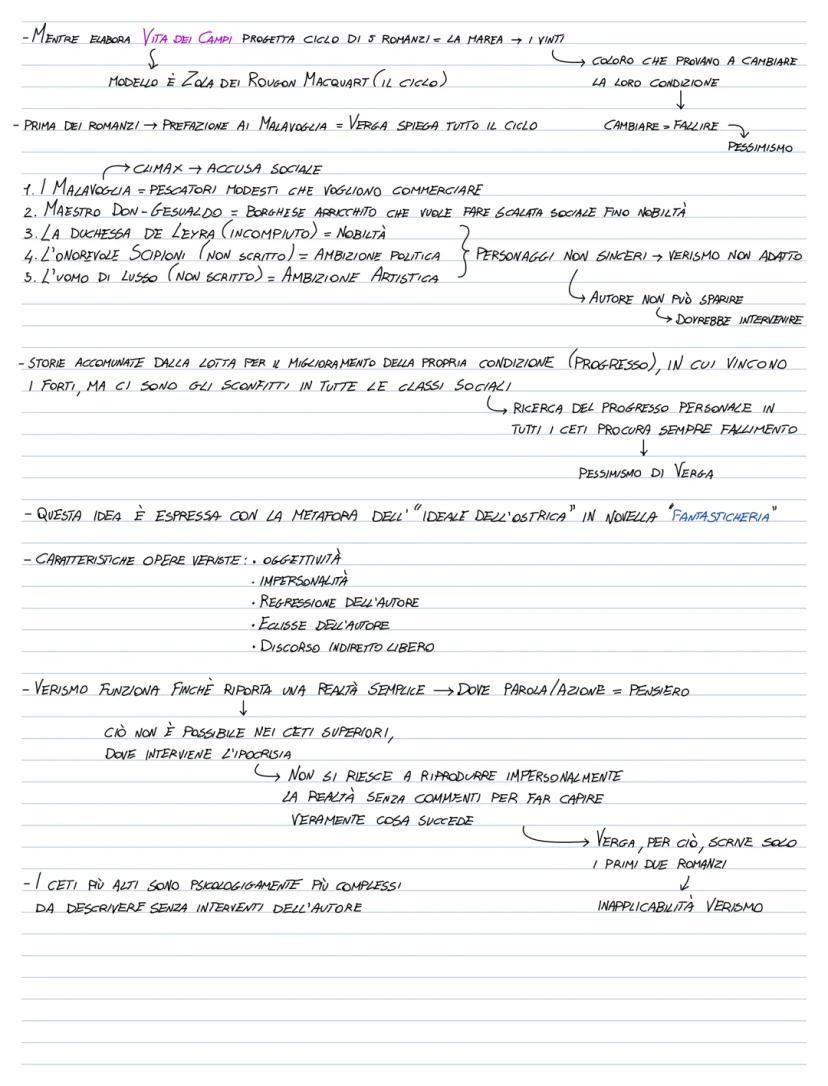 - MENTRE ELABORA VITA DEI CAMPI PROGETTA CICLO DI 5 ROMANZI = LA MAREA → I VINTI
↳ COLORO CHE PROVANO A CAMBIARE
MODELLO È ZOLA DEI ROUGON MACQUART (IL CICLO)
LA LORO CONDIZIONE
↓
- PRIMA DEI ROMANZI → PREFAZIONE AI MALAVOGLIA = VERGA SPIEGA TUTTO IL CICLO
CAMBIARE = FALLIRE
PESSIMISMO
→ CLIMAX → ACCUSA SOCIALE
1. I MALAVOGLIA = PESCATORI MODESTI CHE VOGLIONO COMMERCIARE
2. MAESTRO DON-GESUALDO = BORGHESE ARRICCHITO CHE VUOLE FARE SCALATA SOCIALE FINO NOBILTÀ
3. LA DUCHESSA DE LEYRA (INCOMPIUTO) = NOBILTÀ
4. L'ONOREVOLE SCIPIONI (NON SCRITTO) = AMBIZIONE POLITICA } PERSONAGGI NON SINCERI → VERISMO NON ADATTO
5. L'UOMO DI LUSSO (NON SCRITTO) = AMBIZIONE ARTISTICA
↳ AUTORE NON PUÒ SPARIRE
↳ DOVREBBE INTERVENIRE
- STORIE ACCOMUNATE DALLA LOTTA PER IL MIGLIORAMENTO DELLA PROPRIA CONDIZIONE (PROGRESSO), IN CUI VINCONO
I FORTI, MA CI SONO GLI SCONFITTI IN TUTTE LE CLASSI SOCIALI
↳ RICERCA DEL PROGRESSO PERSONALE IN
TUTTI I CETI PROCURA SEMPRE FALLIMENTO
↓
PESSIMISMO DI VERGA
- QUESTA IDEA È ESPRESSA CON LA METAFORA DELL' "IDEALE DELL'OSTRICA" IN NOVELLA "FANTASTICHERIA"
- CARATTERISTICHE OPERE VERISTE: · OGGETTIVITÀ
· IMPERSONALITÀ
· REGRESSIONE DELL'AUTORE
· ECLISSE DELL'AUTORE
· DISCORSO INDIRETTO LIBERO
- VERISMO FUNZIONA FINCHÈ RIPORTA UNA REALTÀ SEMPLICE → DOVE PAROLA/AZIONE = PENSIERO
↓
CIÒ NON È POSSIBILE NEI CETI SUPERIORI,
DOVE INTERVIENE L'IPOCRISIA
↳ NON SI RIESCE A RIPRODURRE IMPERSONALMENTE
LA REALTÀ SENZA COMMENTI PER FAR CAPIRE
VERAMENTE COSA SUCCEDE
→ VERGA, PER CIÒ, SCRIVE SOLO
I PRIMI DUE ROMANZI
- I CETI PIÙ ALTI SONO PSICOLOGIGAMENTE PIÙ COMPLESSI
↓
DA DESCRIVERE SENZA INTERVENTI DELL'AUTORE
INAPPLICABILITÀ VERISMO